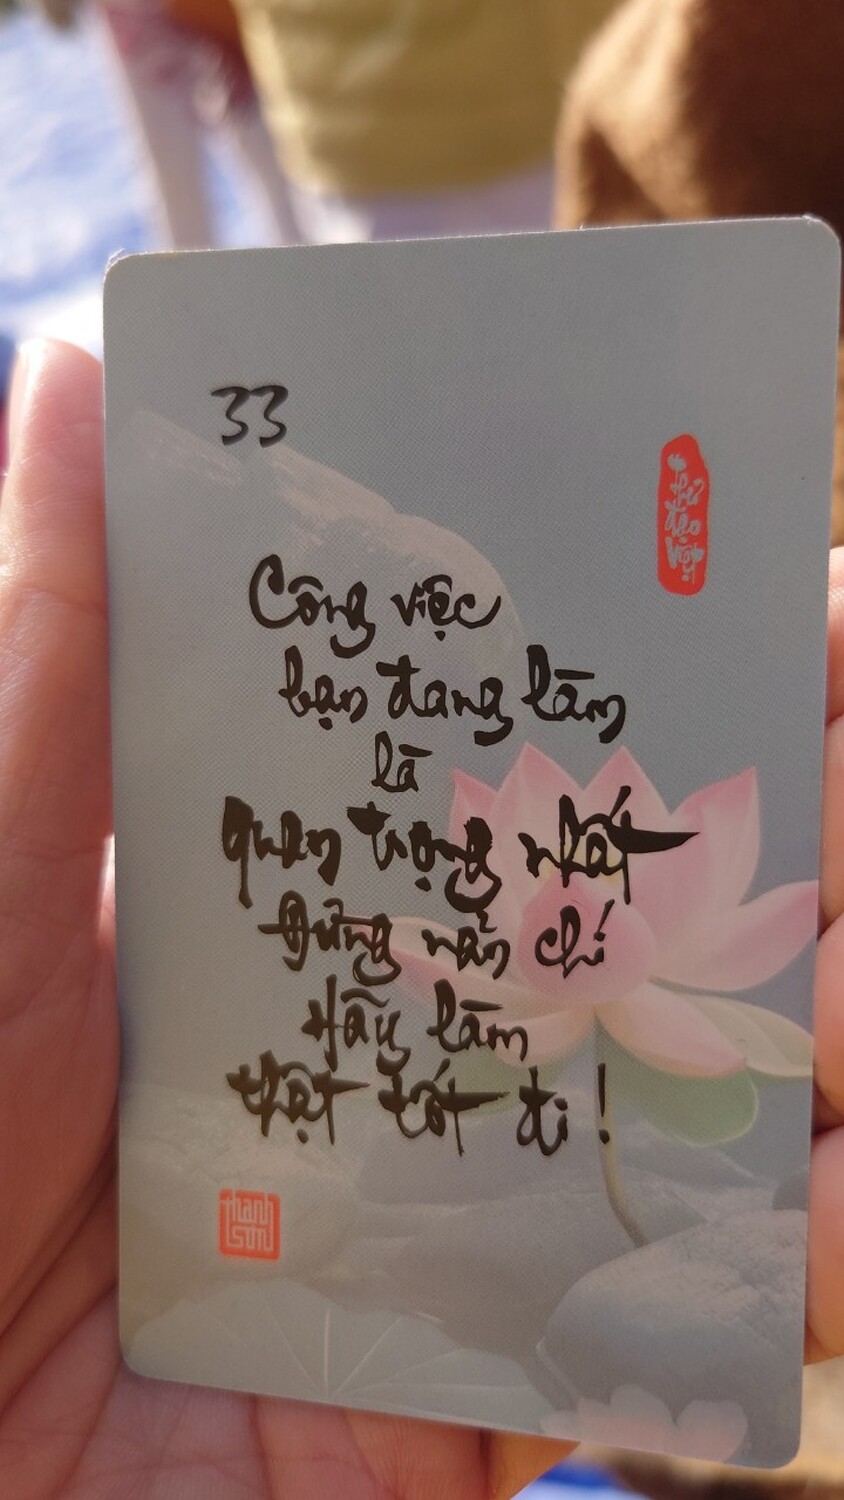 33
thư
đạo
Việt
Công việc
bạn đang làm
là
quan trọng nhất
Đừng nản chí
Hãy làm
thật tốt đi !
thanh
sơn